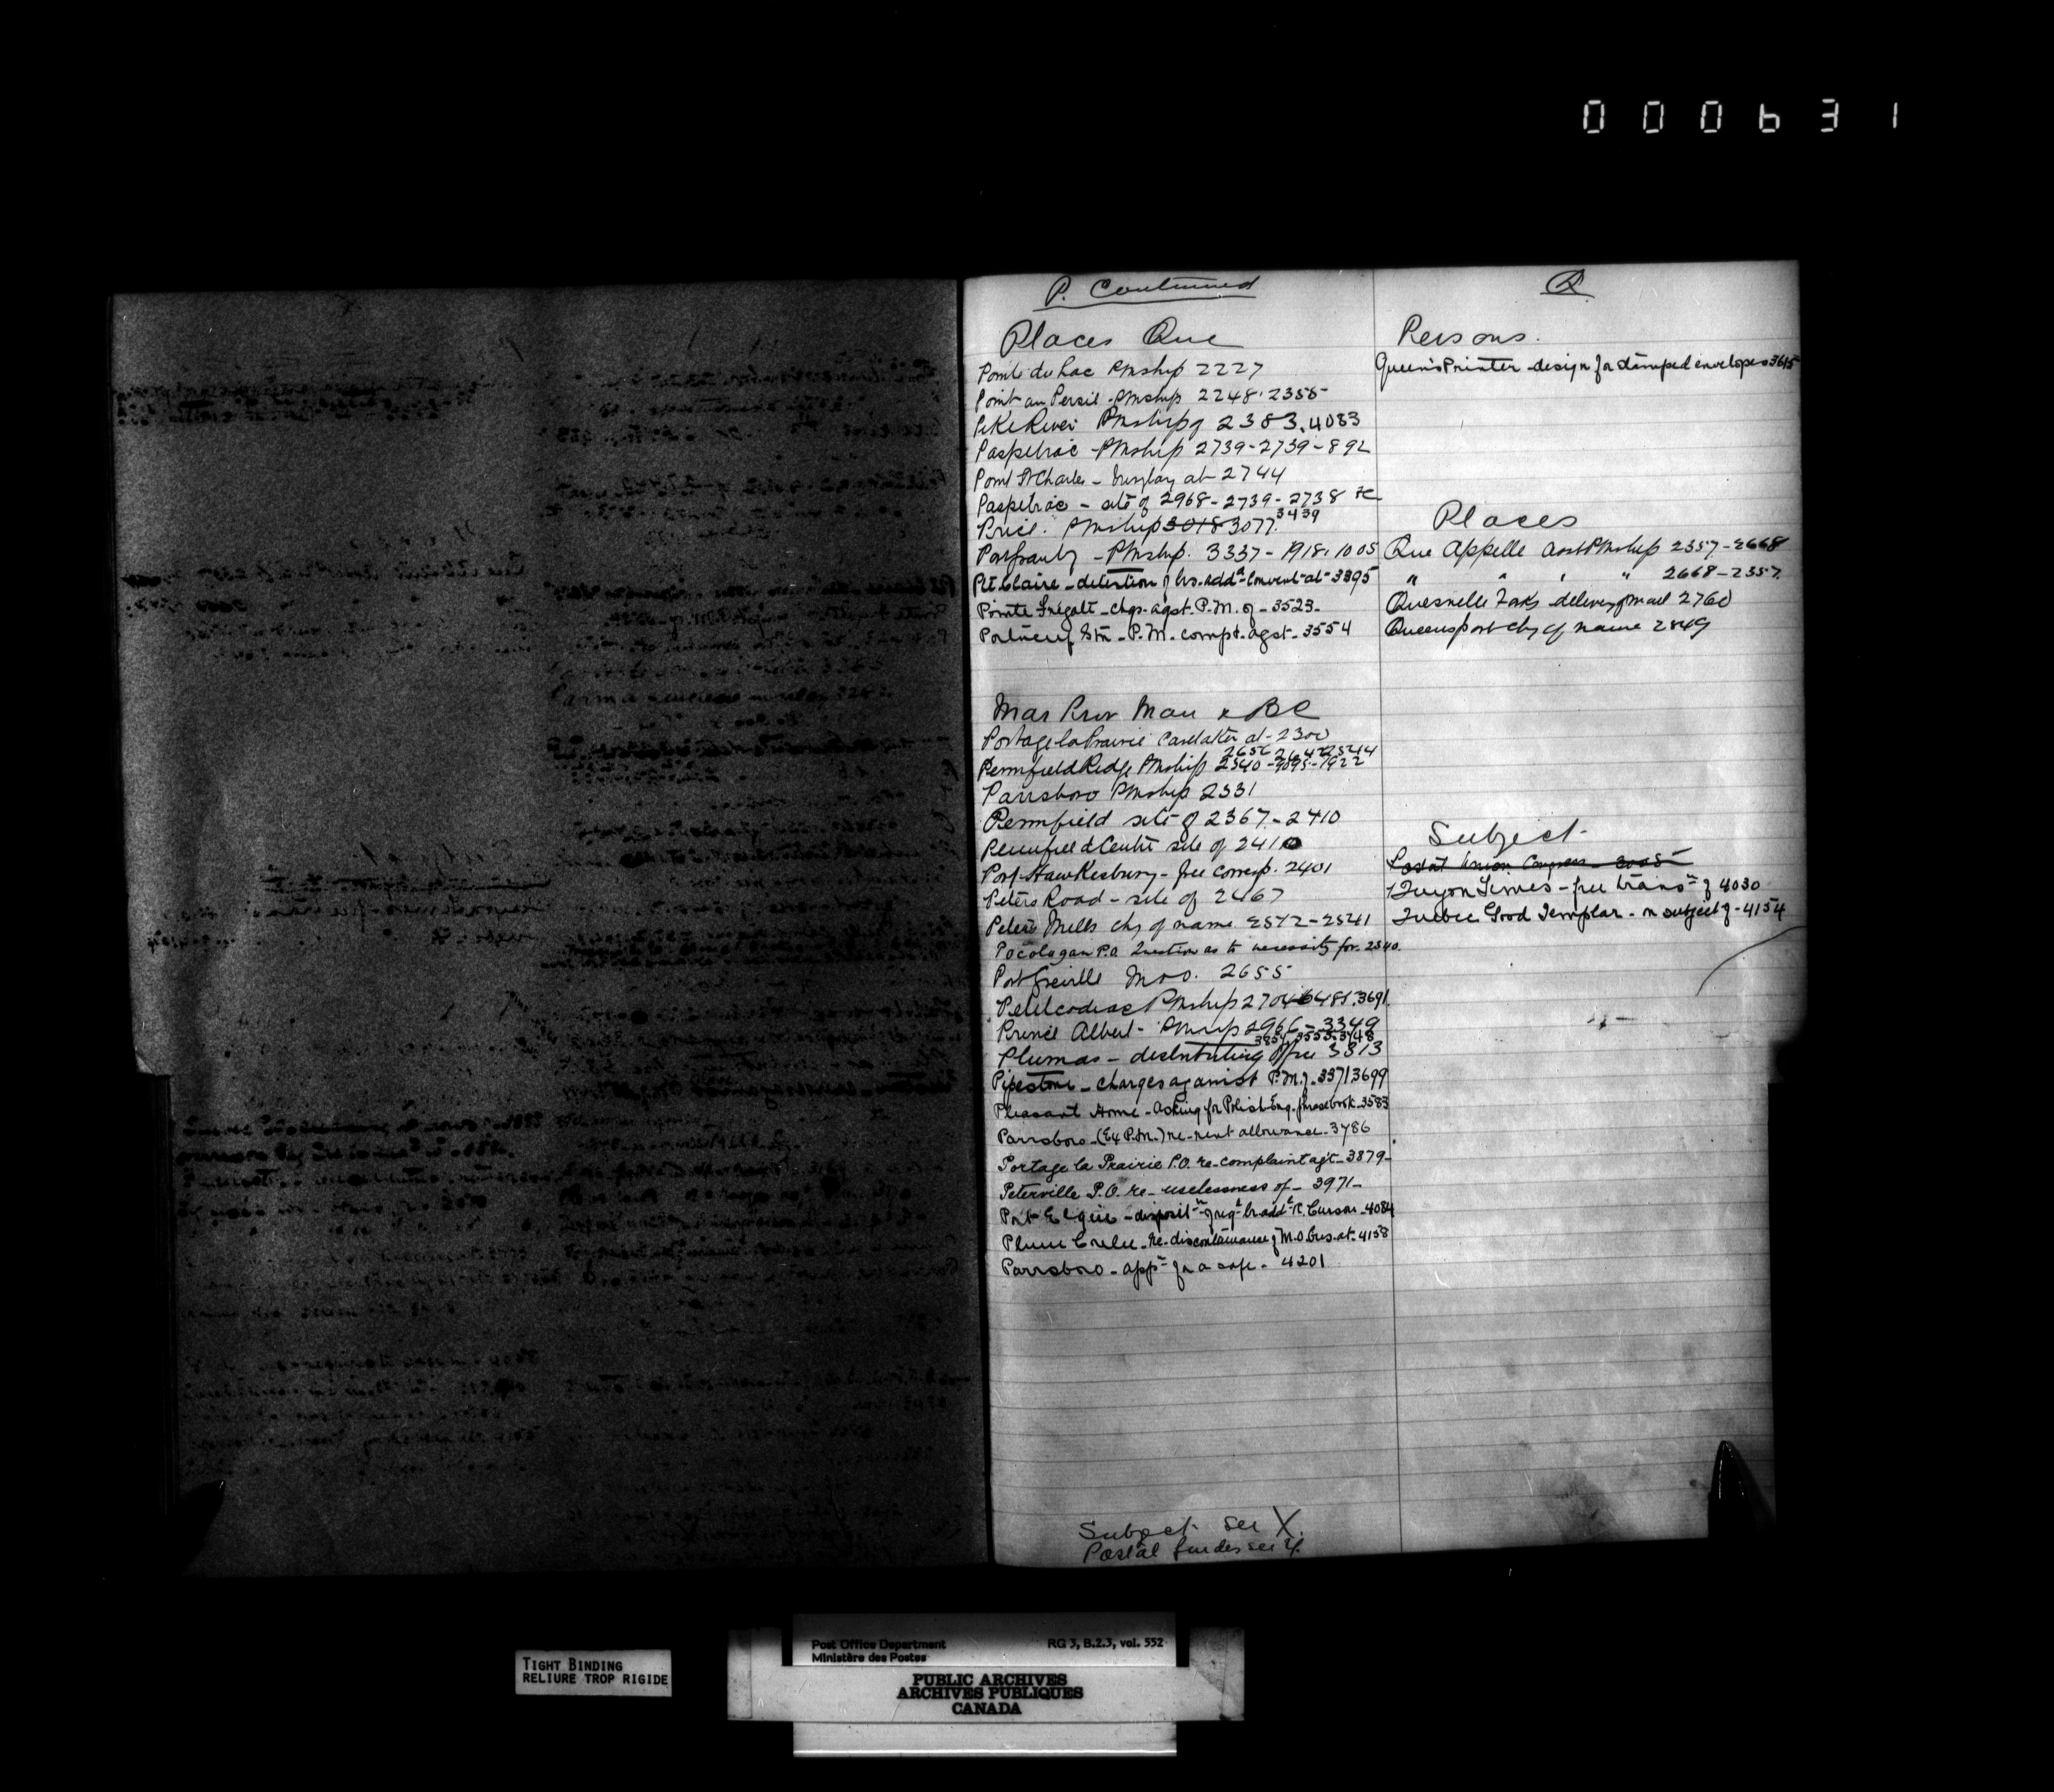 000631
P. Continued
Places Que
Pointe du Lac PMship 2227
Point au Persil - PMship 2248. 2355
Pike River PMship of 2383. 4083
Paspebiac - PMship 2739-2739-892
Point St Charles - Burglary at 2744
Paspebiac - site of 2968-2739-2738 &c
Price. PMship 3018 3077. 3439
- PMship. 3337-1918. 1005
Pte Claire - detention of lrs. addd Convent at 3395
Pointe Fregate - chgs. agst. P.M. of - 3523 -
Portneuf Stn - P.M. compt. agst. 3554
Mar Prov Man & BC
Portage la Prairie Caretaker at 2300
Pennfield Ridge PMship 2540
Parrsboro PMship 2331
Pennfield site of 2367-2410
Pennfield Centre site of 2410
Port Hawkesbury - free corresp. 2401
Peters Road - site of 2467
Peters Mills chg of name 2572-2541
Pocologan P.O. Question as to necessity for. 2540.
Port Greville M.O.O. 2655
Petitcodiac PMship 2704 6481. 3691
Prince Albert - PMship 2966-3349
3854. 3553. 3448
Plumas - distributing Office 3313
Pipestone - charges against P.M. of. 3371 3699
Pleasant Home - asking for Polish-Eng. phrasebook. 3583
Parrsboro - (Ex P.M.) re-rent allowance - 3786
Portage la Prairie P.O. re-complaint agt - 3879 -
Peterville P.O. re - uselessness of - 3971 -
Port Elgin - disposit'n of reg'd lr add'd R. Curson - 4084
Plum Coulee - Re-discontinuance of M.O. Bus. at - 4158
Parrsboro - app'n for a safe - 4201
Subject see X.
Postal Guides see X.
Q
Persons.
Queen's Printer - design for stamped envelopes 3615
Places
Qu'Appelle asst PMship 2357-2668
" " " " 2668-2357
Quesnelle Forks delivery of mail 2760
Queensport chg of name 2849
Subject
Postal Union Congress 3005
Quyon Times - free trans'n of 4030
Quebec Good Templar - on subject of - 4154
TIGHT BINDING
RELIURE TROP RIGIDE
Post Office Department RG 3, B.2.3, vol. 552
Ministère des Postes
PUBLIC ARCHIVES
ARCHIVES PUBLIQUES
CANADA